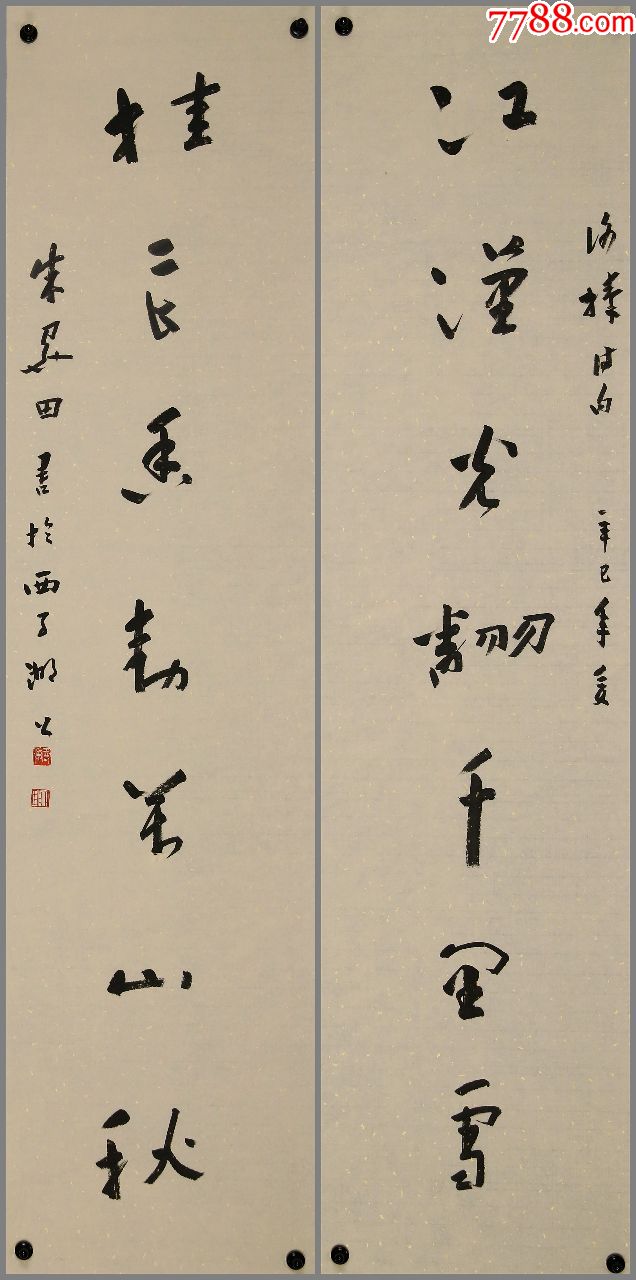 江漢光翻千里雪
謝榛詩句 辛巳年夏
桂花香動萬山秋
朱關田書於西子湖上
7788.com